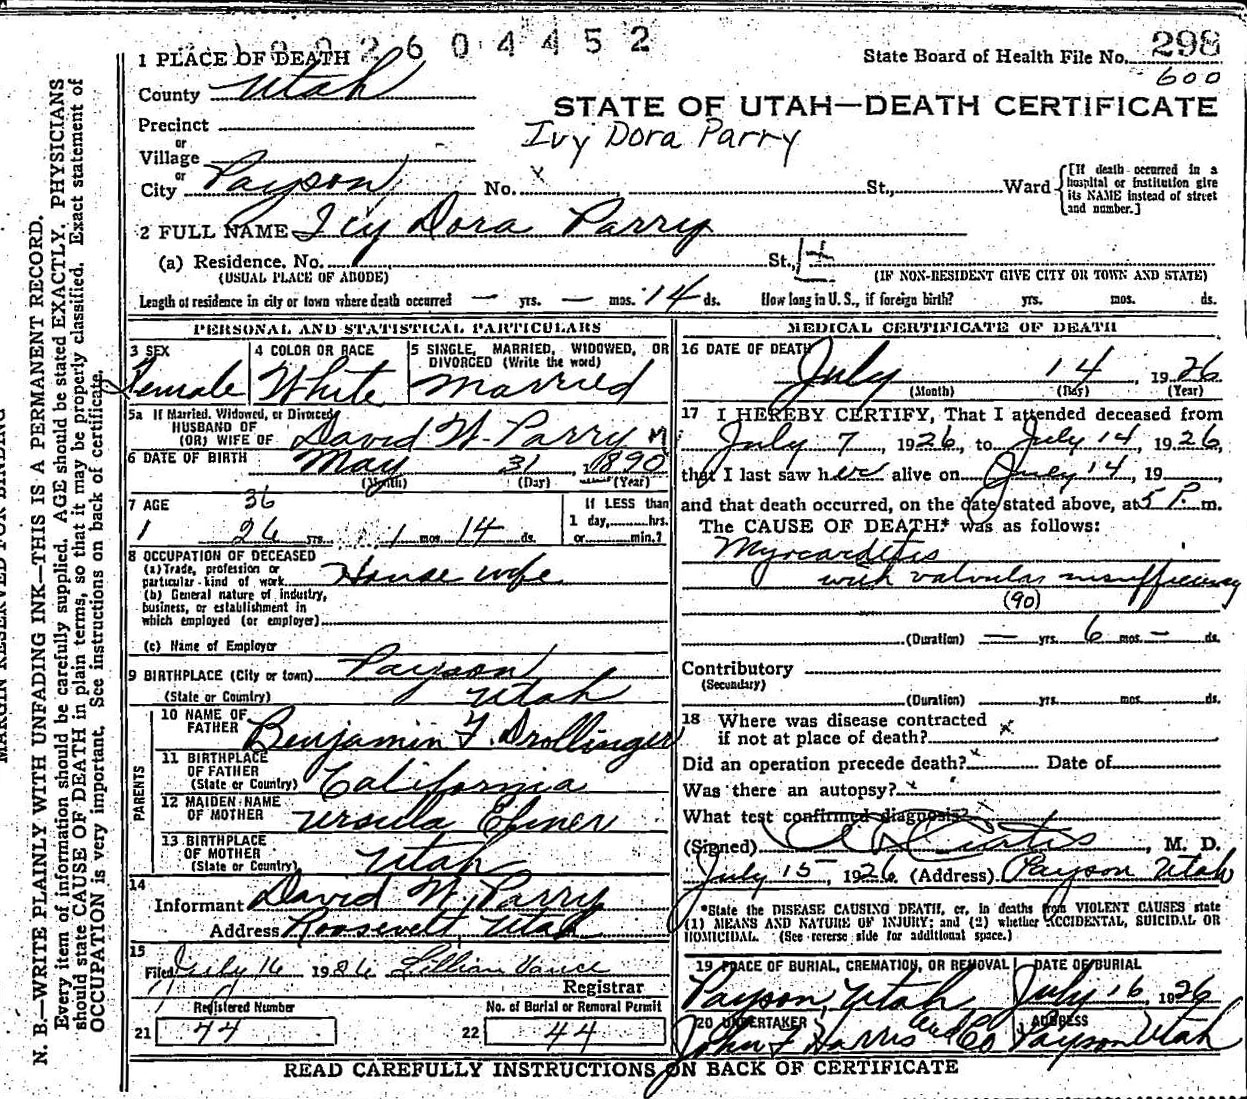 2604452
State Board of Health File No. 298
600
1 PLACE OF DEATH
County Utah
STATE OF UTAH—DEATH CERTIFICATE
Ivy Dora Parry
Precinct
or
Village
or
City Payson No. x St., Ward [If death occurred in a hospital or institution give its NAME instead of street and number.]
2 FULL NAME Icy Dora Parry
(a) Residence. No. St.,
(USUAL PLACE OF ABODE) (IF NON-RESIDENT GIVE CITY OR TOWN AND STATE)
Length of residence in city or town where death occurred — yrs. — mos. 14 ds. How long in U. S., if foreign birth? yrs. mos. ds.
PERSONAL AND STATISTICAL PARTICULARS
3 SEX
Female
4 COLOR OR RACE
White
5 SINGLE, MARRIED, WIDOWED, OR
DIVORCED (Write the word)
Married
5a If Married, Widowed, or Divorced
HUSBAND OF
(OR) WIFE OF David W. Parry
6 DATE OF BIRTH May 31, 1890
(Month) (Day) (Year)
7 AGE 36 If LESS than
1 26 yrs. 1 mos. 14 ds. 1 day, hrs.
or min.?
8 OCCUPATION OF DECEASED
(a) Trade, profession or
particular kind of work House wife
(b) General nature of industry,
business, or establishment in
which employed (or employer)
(c) Name of Employer
9 BIRTHPLACE (City or town) Payson
(State or Country) Utah
PARENTS
10 NAME OF
FATHER Benjamin F. Drollinger
11 BIRTHPLACE
OF FATHER
(State or Country) California
12 MAIDEN NAME
OF MOTHER Ursula Elmer
13 BIRTHPLACE
OF MOTHER
(State or Country) Utah
14
Informant David W. Parry
Address Roosevelt, Utah
15
Filed July 16 1926 Lillian Vance
Registrar
Registered Number No. of Burial or Removal Permit
21 44 22 44
MEDICAL CERTIFICATE OF DEATH
16 DATE OF DEATH July 14, 1926
(Month) (Day) (Year)
17 I HEREBY CERTIFY, That I attended deceased from
July 7, 1926, to July 14, 1926,
that I last saw her alive on July 14, 19
and that death occurred, on the date stated above, at 5 P. m.
The CAUSE OF DEATH* was as follows:
Myocarditis
with valvular insufficiency
(90)
(Duration) — yrs. 6 mos. — ds.
Contributory
(Secondary)
(Duration) yrs. mos. ds.
18 Where was disease contracted
if not at place of death? x
Did an operation precede death? x Date of
Was there an autopsy? x
What test confirmed diagnosis? x
(Signed) Curtis, M. D.
July 15, 1926. (Address) Payson Utah
*State the DISEASE CAUSING DEATH, or, in deaths from VIOLENT CAUSES state
(1) MEANS AND NATURE OF INJURY; and (2) whether ACCIDENTAL, SUICIDAL OR
HOMICIDAL. (See reverse side for additional space.)
19 PLACE OF BURIAL, CREMATION, OR REMOVAL DATE OF BURIAL
Payson, Utah July 16, 1926
20 UNDERTAKER ADDRESS
John F Harris and Co Payson Utah
READ CAREFULLY INSTRUCTIONS ON BACK OF CERTIFICATE
MARGIN RESERVED FOR BINDING
N. B.—WRITE PLAINLY WITH UNFADING INK—THIS IS A PERMANENT RECORD.
Every item of information should be carefully supplied. AGE should be stated EXACTLY. PHYSICIANS
should state CAUSE OF DEATH in plain terms, so that it may be properly classified. Exact statement of
OCCUPATION is very important. See instructions on back of certificate.